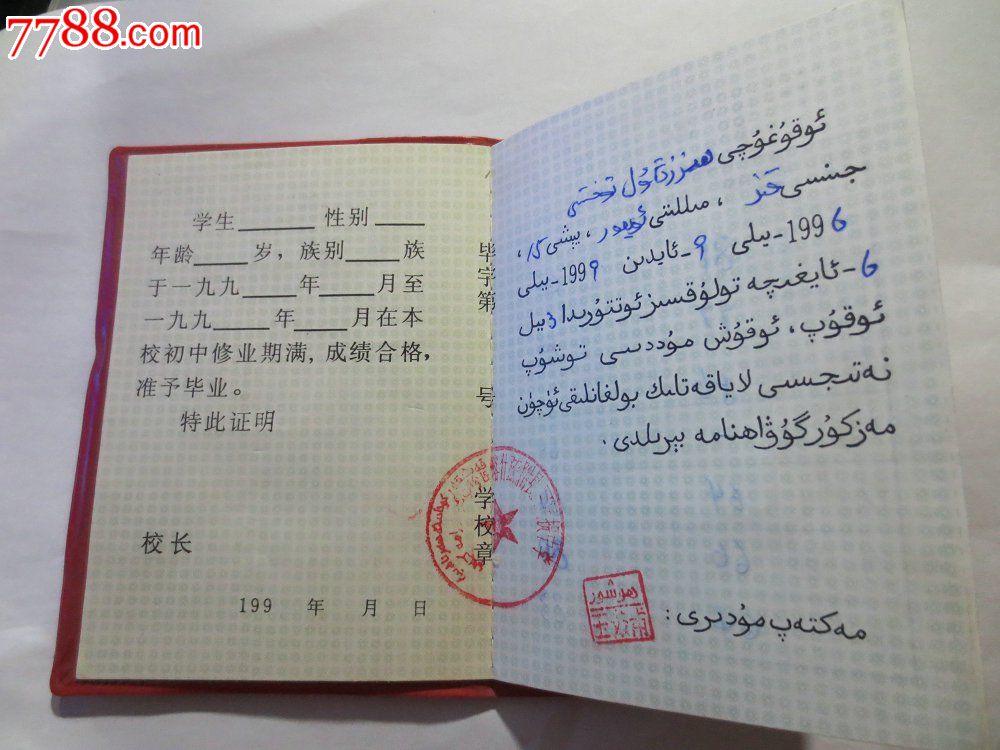 7788.com
学生______ 性别____
年龄____岁，族别____族
于一九九____年____月至
一九九____年____月在本
校初中修业期满，成绩合格，
准予毕业。
特此证明
校长
199 年 月 日
毕字第 号
学校章
ئوقۇغۇچى
جىنسى قىز ، مىللىتى ئۇيغۇر ، يېشى 15 ،
1996-يىلى 9-ئايدىن 1999-يىلى
6-ئايغىچە تولۇقسىز ئوتتۇرىدا 3 يىل
ئوقۇپ، ئوقۇش مۇددىسى توشۇپ
نەتىجىسى لاياقەتلىك بولغانلىقى ئۈچۈن
مەزكۇر گۇۋاھنامە بېرىلدى.
مەكتەپ مۇدىرى: